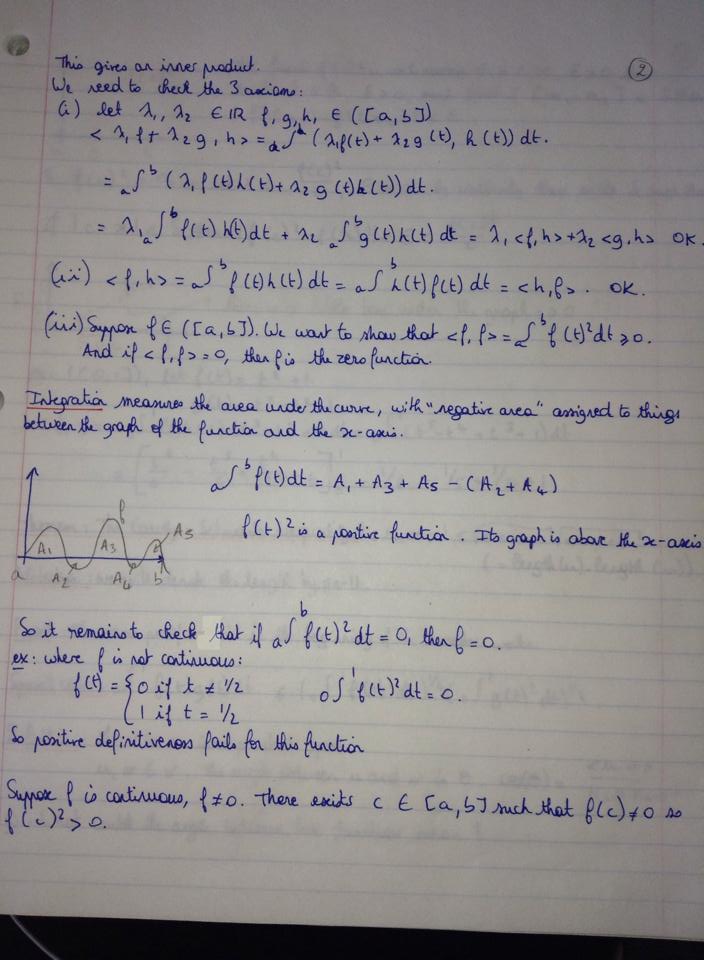 ②
This gives an inner product.
We need to check the 3 axioms:
(i) let λ₁, λ₂ ∈ IR f, g, h, ∈ ([a,b])
< λ₁ f + λ₂ g , h > = ₐ∫ᵇ (λ₁f(t) + λ₂ g (t), h (t)) dt.
= ₐ∫ᵇ (λ₁ f(t)h(t) + λ₂ g (t)h(t)) dt.
= λ₁ ₐ∫ᵇ f(t) h(t) dt + λ₂ ₐ∫ᵇ g(t)h(t) dt = λ₁ <f,h> + λ₂ <g,h> OK.
(ii) <f,h> = ₐ∫ᵇ f(t)h(t) dt = ₐ∫ᵇ h(t) f(t) dt = <h,f> . OK.
(iii) Suppose f ∈ ([a,b]). We want to show that <f,f> = ₐ∫ᵇ f(t)² dt ≥ 0.
And if <f,f> = 0, then f is the zero function.
Integration measures the area under the curve, with "negative area" assigned to things
between the graph of the function and the x-axis.
ₐ∫ᵇ f(t) dt = A₁ + A₃ + A₅ - (A₂ + A₄)
f
A₁ A₃ A₅
a A₂ A₄ b
f(t)² is a positive function. Its graph is above the x-axis
So it remains to check that if ₐ∫ᵇ f(t)² dt = 0, then f = 0.
ex: where f is not continuous:
f(t) = {0 if t ≠ 1/2 ₀∫¹ f(t)² dt = 0.
{1 if t = 1/2
So positive definitiveness fails for this function
Suppose f is continuous, f ≠ 0. There exits c ∈ [a,b] such that f(c) ≠ 0 so
f(c)² > 0.